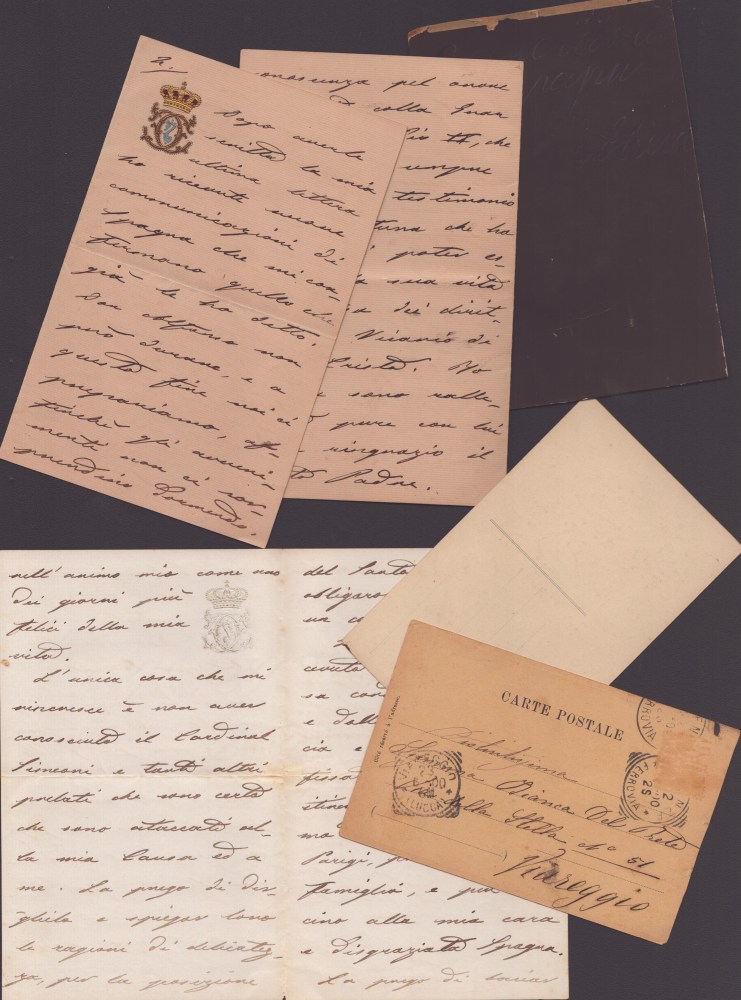 2.
Dopo averle
scritto la mia
ultima lettera
ho ricevute nuove
comunicazioni di
Spagna che mi con-
fermano quelle che
già le ho detto.
Don Alfonso non
però durare, e a
questo fine noi ci
prepariamo, af-
finchè gli avveni-
menti non ci sor-
prendino dormendo.
noscenza pel onore
colla Gran
IX, che
unque
testimonio
tuna che ha
poter es-
sua vita
dei dirit-
Vicario di
Cristo. Ho
sono ralle-
pure con lui
ringrazio il
Padre.
nell'animo mio come uno
dei giorni più
felici della mia
vita.
L'unica cosa che mi
rincresce è non aver
conosciuto il Cardinal
Simeoni e tanti altri
prelati che sono certo
che sono attaccati al-
la mia Causa ed a
me. La prego di dir-
glielo e spiegar loro
le ragioni di delicatez-
za, per la posizione
del Santo
obligaro
un
cevuto
sa con
e dall
cia e
fissa
itine
mo
Parigi, p
famiglia, e piu
cino alla mia cara
e disgraziata Spagna.
La prego di baciar
CARTE POSTALE
FERROVIA
Gentilissima
Signora Bianca Del Prete
Via della Stella, No 51
Viareggio
VIAREGGIO
(LUCCA)
FERROVIA